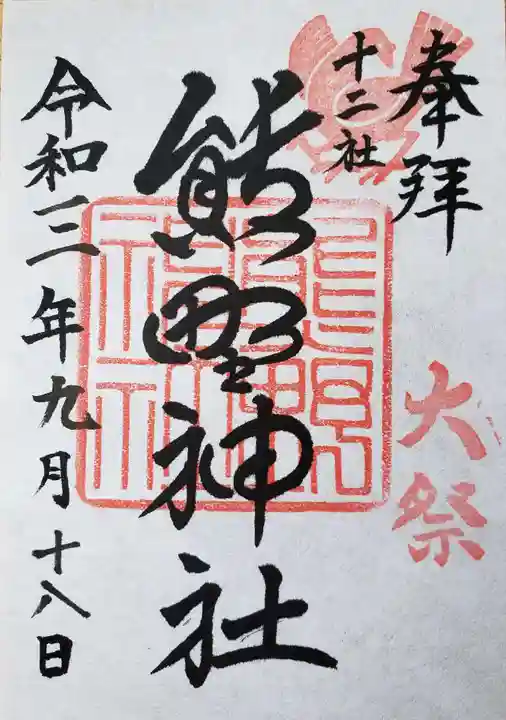 奉拝
大祭
十二社
熊野神社
令和三年九月十八日